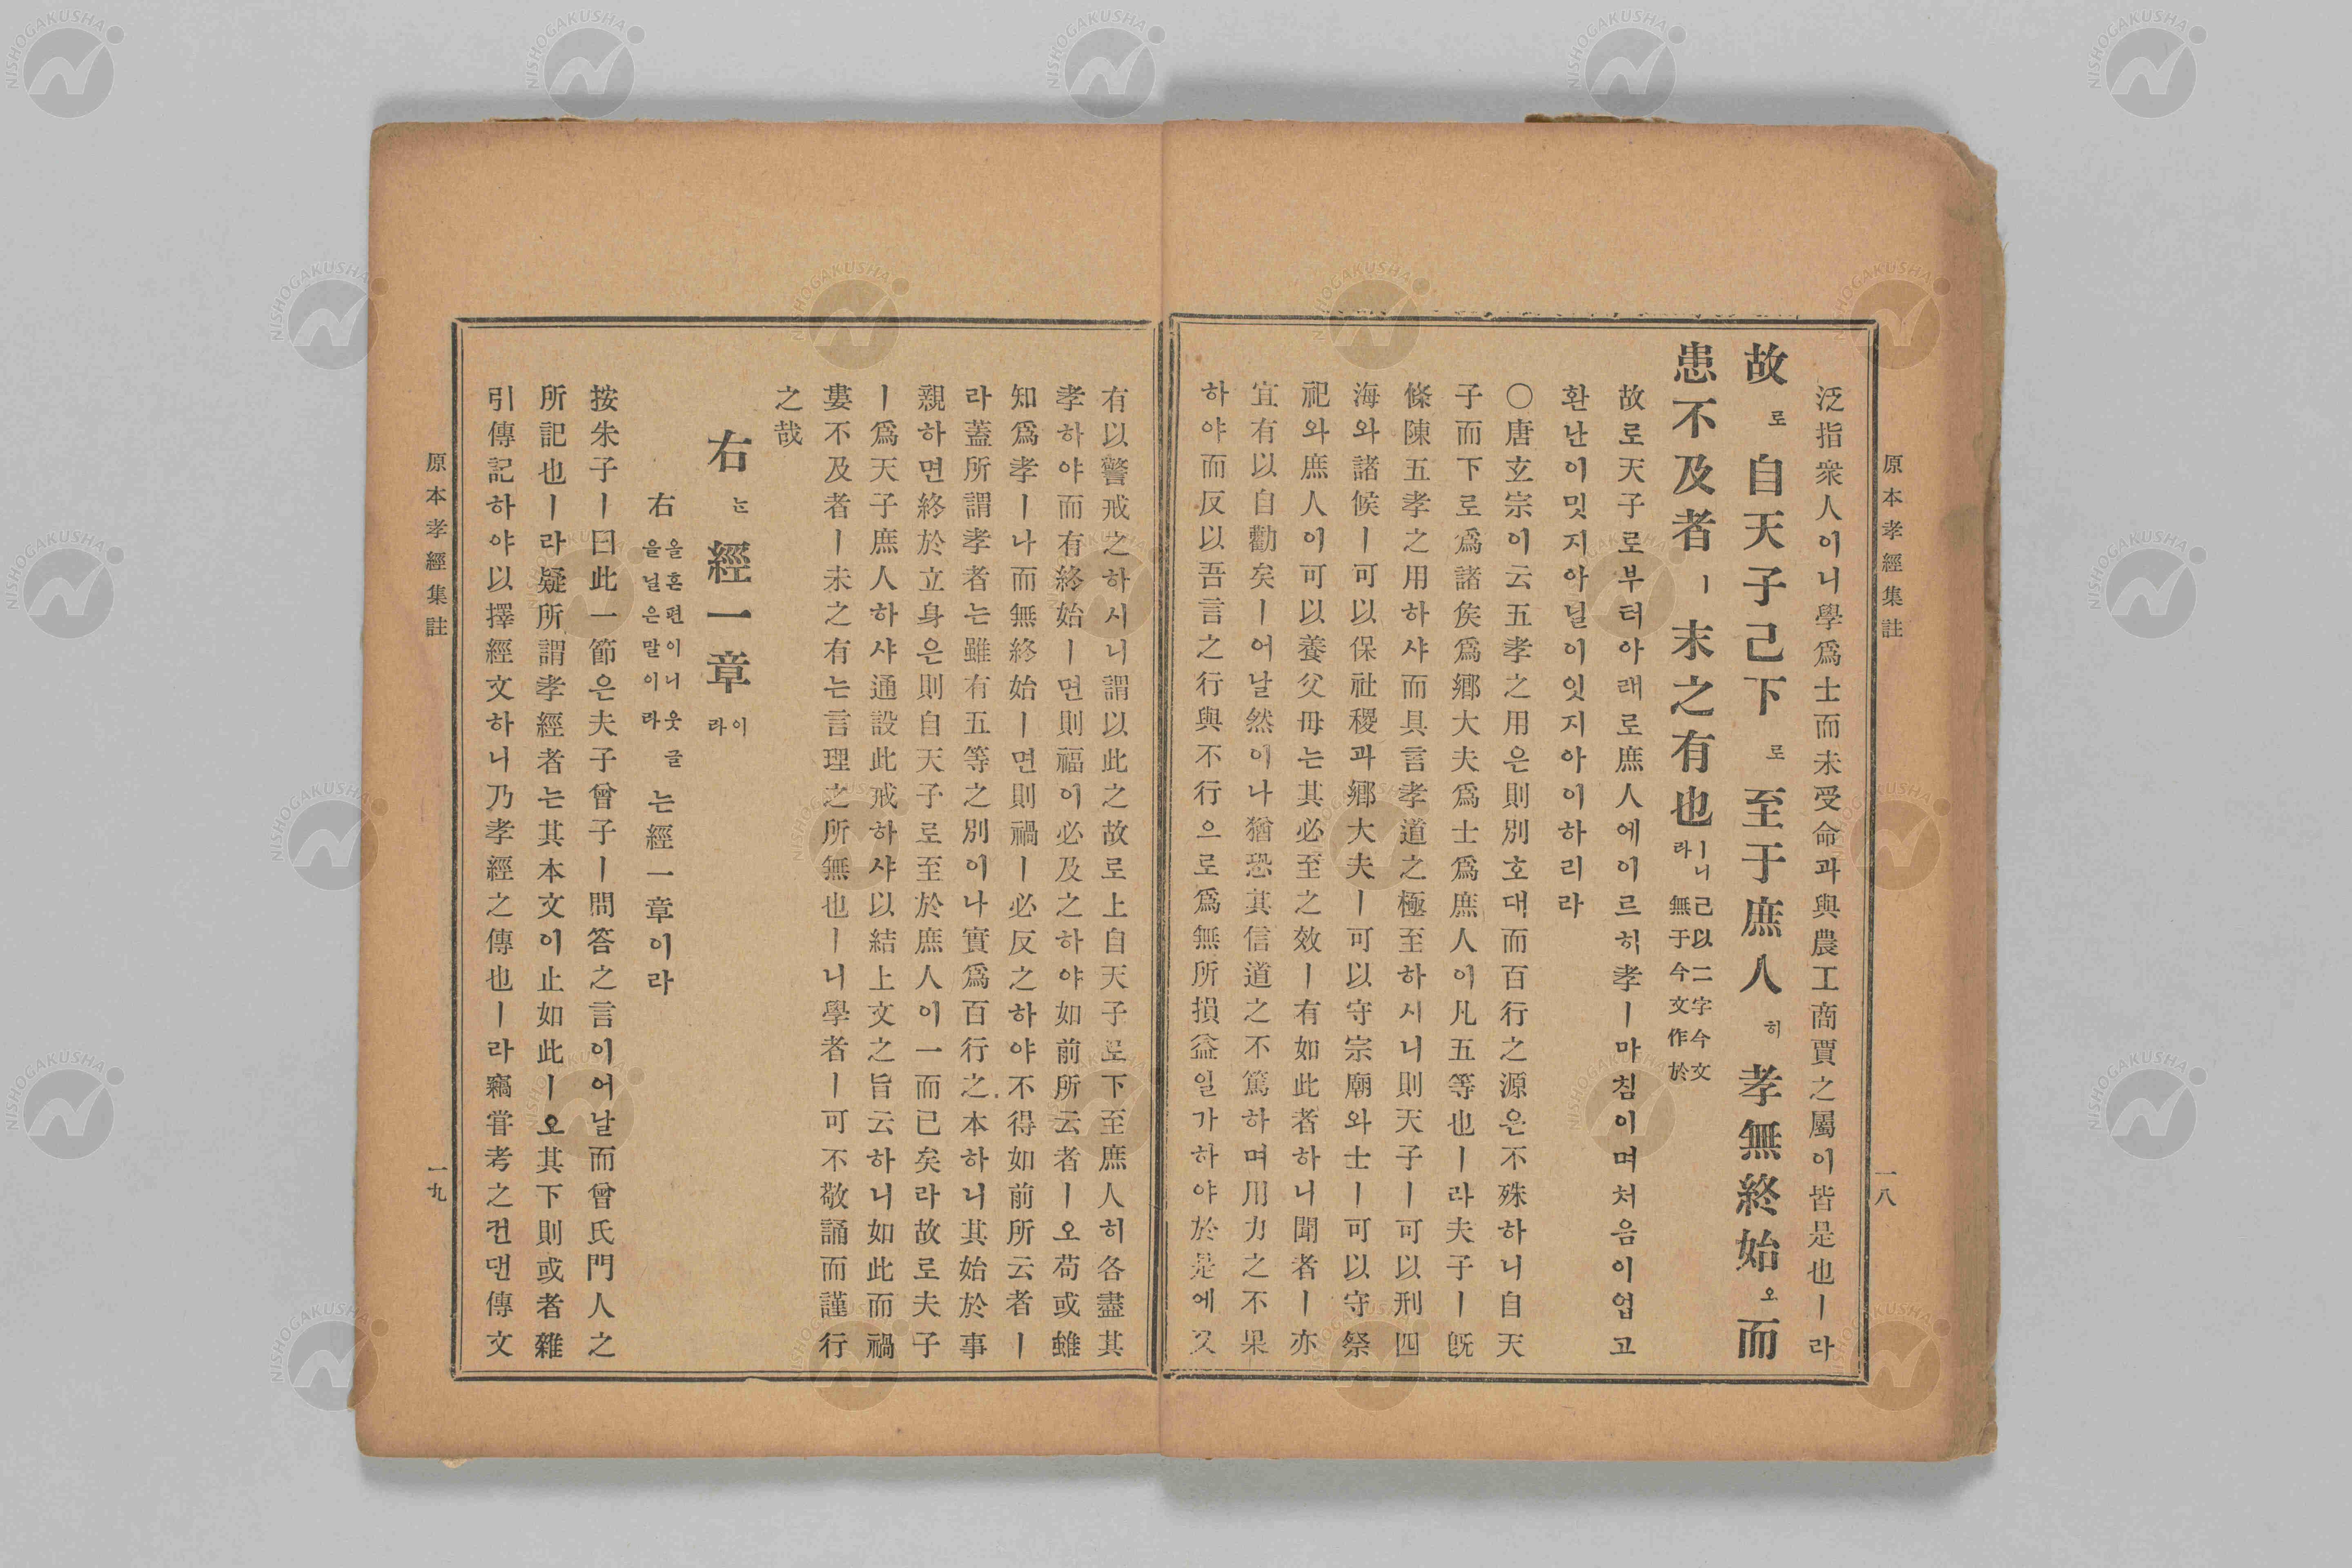 原本孝經集註
一八
泛指衆人이니學爲士而未受命과與農工商賈之屬이皆是也ㅣ라
故로自天子己下로至于庶人히孝無終始오而
患不及者ㅣ末之有也ㅣ니라己以二字今文無于今文作於
故로天子로부터아래로庶人에이르히孝ㅣ마침이며처음이업고
환난이밋지아닐이잇지아이하리라
○唐玄宗이云五孝之用은則別호대而百行之源은不殊하니自天
子而下로爲諸侯爲鄕大夫爲士爲庶人이凡五等也ㅣ라夫子ㅣ旣
條陳五孝之用하샤而具言孝道之極至하시니則天子ㅣ可以刑四
海와諸候ㅣ可以保社稷과鄕大夫ㅣ可以守宗廟와士ㅣ可以守祭
祀와庶人이可以養父母는其必至之效ㅣ有如此者하니聞者ㅣ亦
宜有以自勸矣ㅣ어날然이나猶恐其信道之不篤하며用力之不果
하야而反以吾言之行與不行으로爲無所損益일가하야於是에又
有以警戒之하시니謂以此之故로上自天子로下至庶人히各盡其
孝하야而有終始ㅣ면則福이必及之하야如前所云者ㅣ오苟或雖
知爲孝ㅣ나而無終始ㅣ면則禍ㅣ必反之하야不得如前所云者ㅣ
라蓋所謂孝者는雖有五等之別이나實爲百行之本하니其始於事
親하면終於立身은則自天子로至於庶人이一而已矣라故로夫子
ㅣ爲天子庶人하샤通設此戒하샤以結上文之旨云하니如此而禍
婁不及者ㅣ未之有는言理之所無也ㅣ니學者ㅣ可不敬誦而謹行
之哉
右는經一章이라
右올흔편이니웃글을닐은말이라는經一章이라
按朱子ㅣ曰此一節은夫子曾子ㅣ問答之言이어날而曾氏門人之
所記也ㅣ라疑所謂孝經者는其本文이止如此ㅣ오其下則或者雜
引傳記하야以擇經文하니乃孝經之傳也ㅣ라竊甞考之컨댄傳文
原本孝經集註
一九